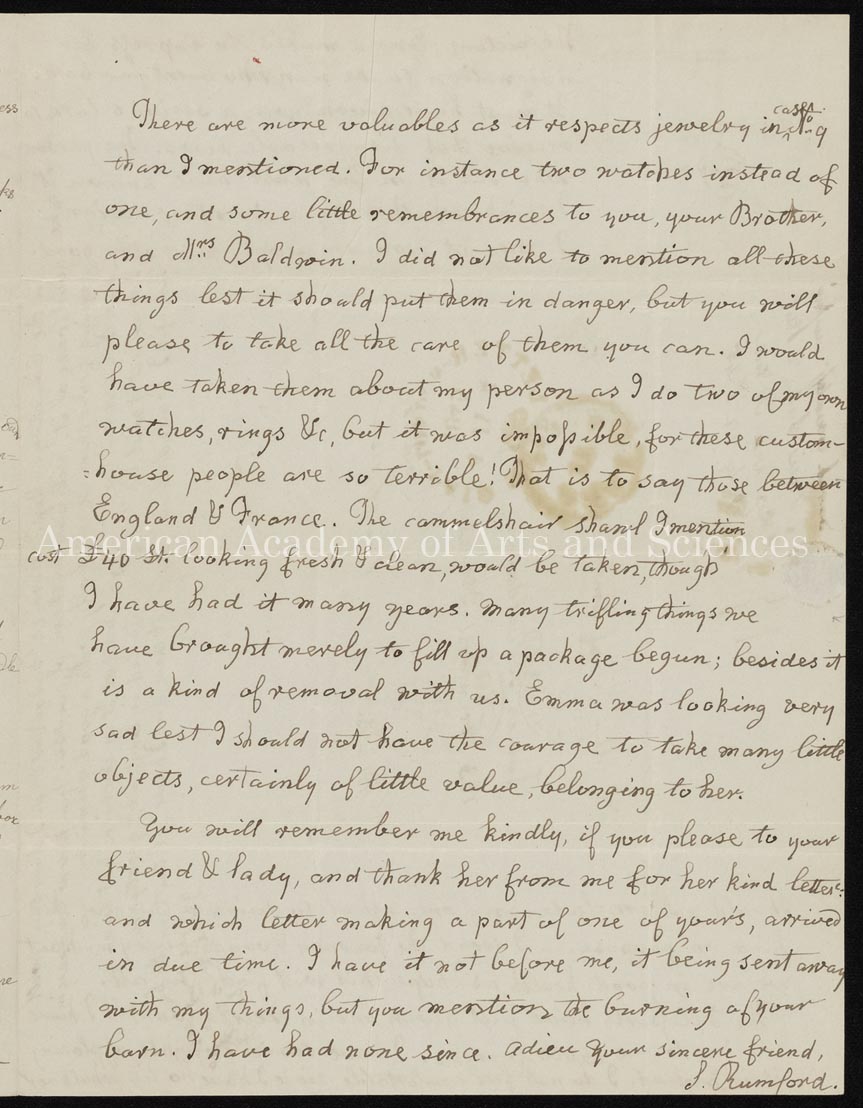 There are more valuables as it respects jewelry in case No. 9
than I mentioned. For instance two watches instead of
one, and some little remembrances to you, your Brother,
and Mrs Baldwin. I did not like to mention all these
things lest it should put them in danger, but you will
please to take all the care of them you can. I would
have taken them about my person as I do two of my own
watches, rings &c, but it was impossible, for these custom-
=house people are so terrible! That is to say those between
England & France. The cammelshair shawl I mention
cost £40 St. looking fresh & clean, would be taken, though
I have had it many years. Many trifling things we
have brought merely to fill up a package begun; besides it
is a kind of removal with us. Emma was looking very
sad lest I should not have the courage to take many little
objects, certainly of little value, belonging to her.
You will remember me kindly, if you please to your
friend & lady, and thank her from me for her kind letter:
and which letter making a part of one of your's, arrived
in due time. I have it not before me, it being sent away
with my things, but you mention the burning of your
barn. I have had none since. Adieu your sincere friend,
S. Rumford.
American Academy of Arts and Sciences